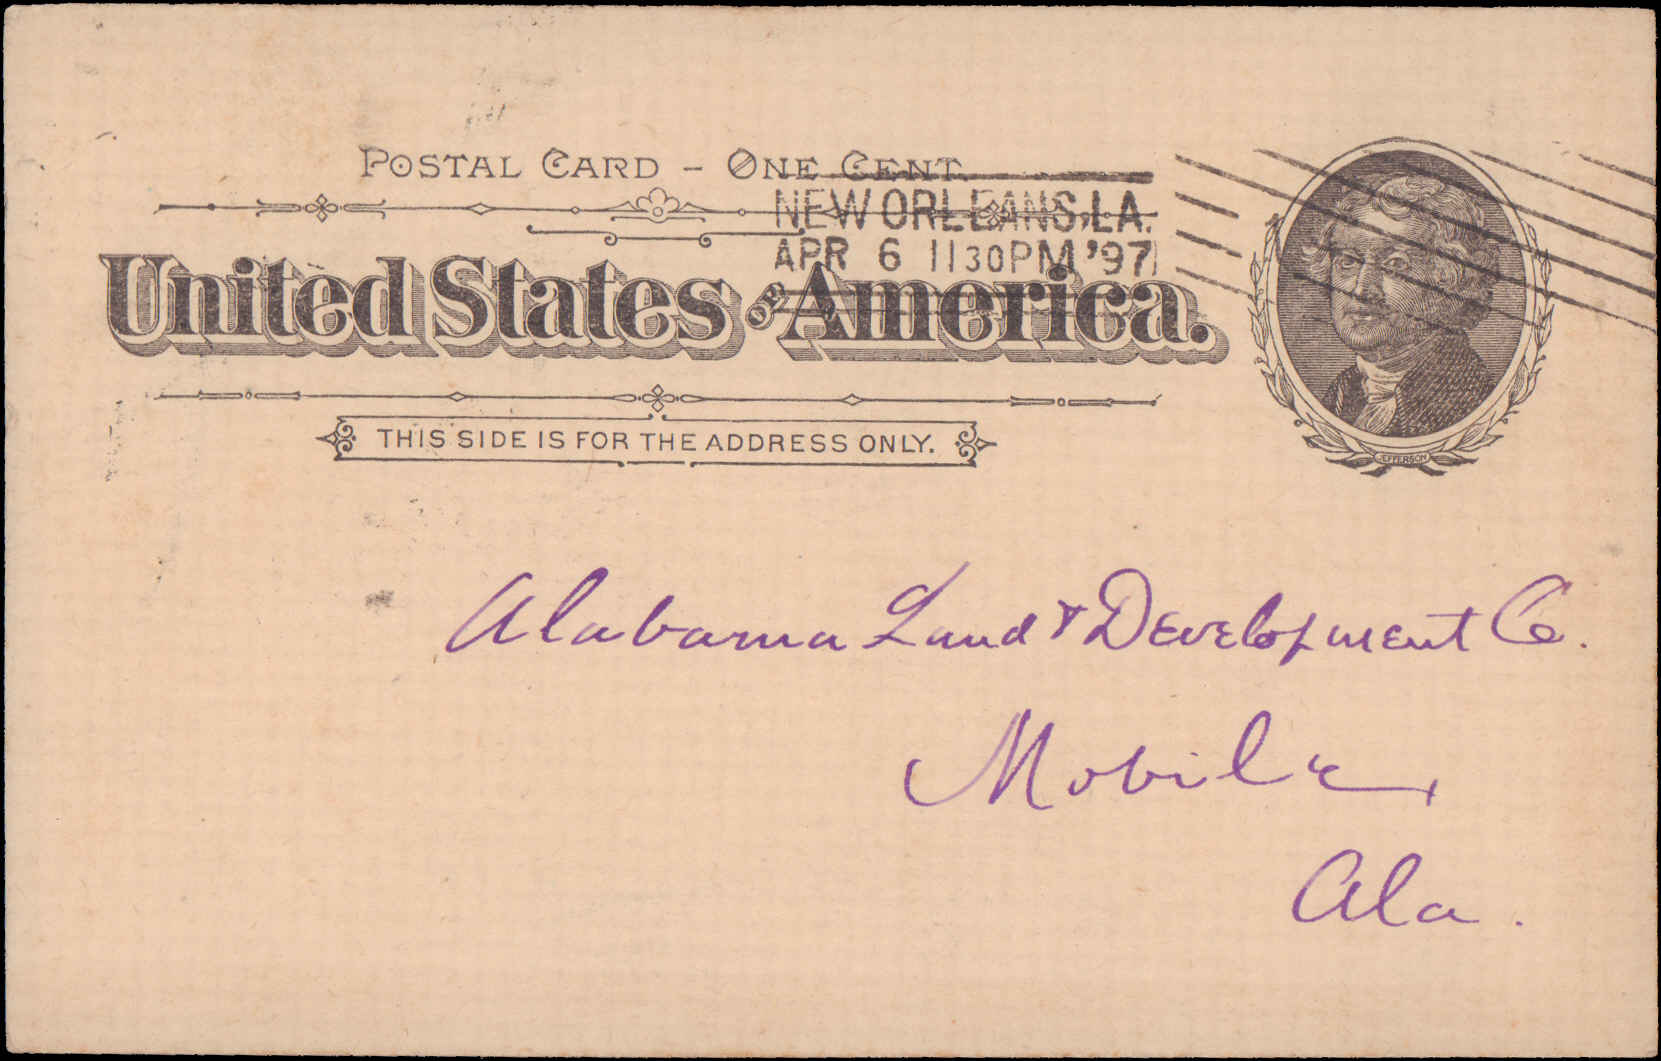 POSTAL CARD - ONE CENT.
NEW ORLEANS, LA.
APR 6 1130PM '97
United States OF America.
THIS SIDE IS FOR THE ADDRESS ONLY.
JEFFERSON
Alabama Land & Development Co.
Mobile,
Ala.